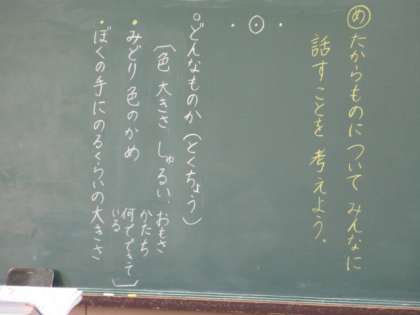 め たからものについて みんなに
話すことを 考えよう。
○どんなものか(とくちょう)
〔色 大きさ しゅるい、おもさ
かたち
何でできて
いる〕
・みどり色のかめ
・ぼくの手にのるくらいの大きさ